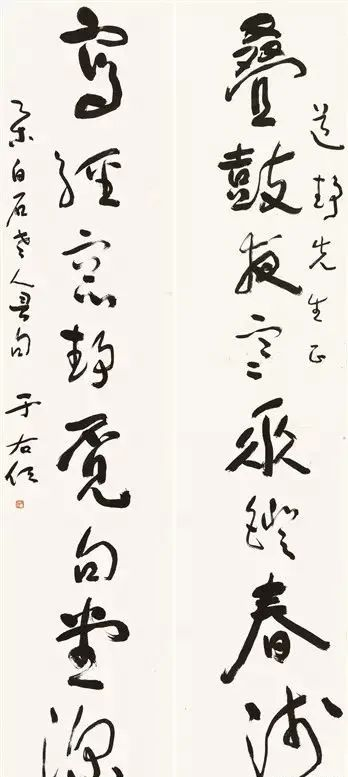 道靜先生正
疊鼓夜寒垂鐙春淺
寫經窗靜覓句堂深
集白石老人句 于右任